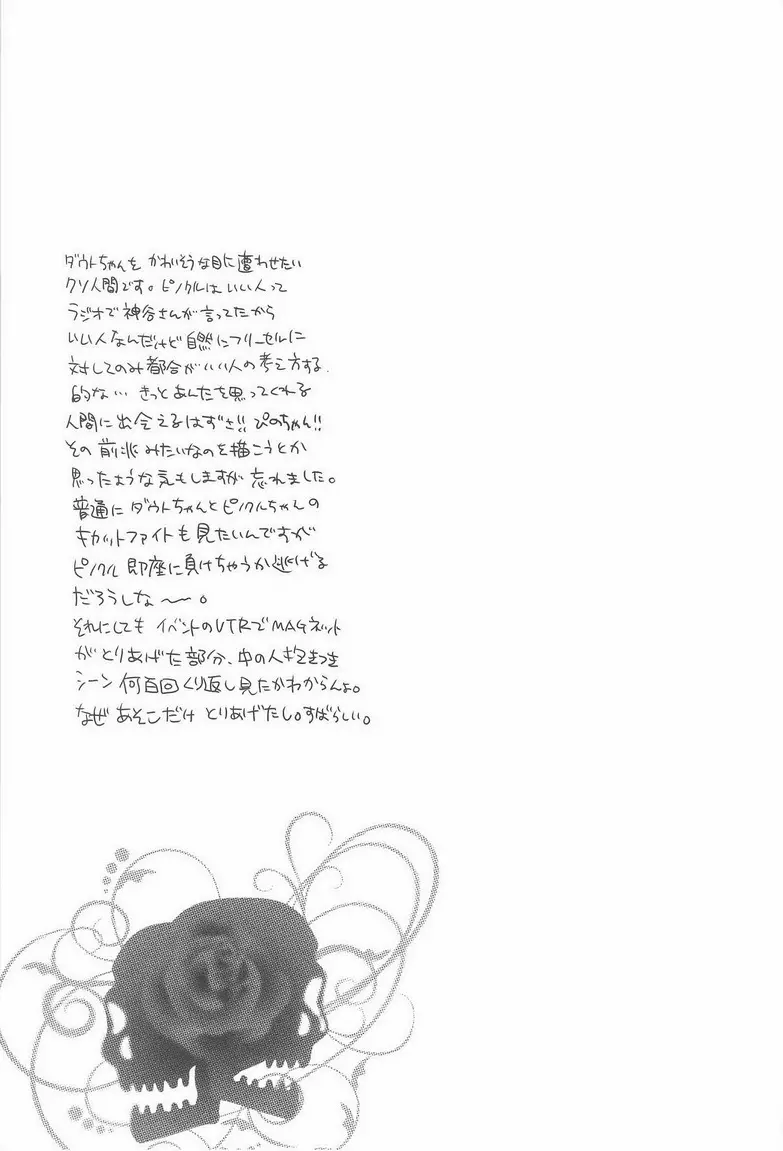 ダウトちゃんを かわいそうな目に遭わせたい
クソ人間です。ピノクルはいい人って
ラジオで神谷さんが言ってたから
いい人なんだけど自然にフリーセルに
対してのみ都合がいい人の考え方する
的な… きっとあんたを思ってくれる
人間に出会えるはずさ!! ぴのちゃん!!
その前兆みたいなのを描こうとか
思ったような気もしますが忘れました。
普通にダウトちゃんとピノクルちゃんの
キャットファイトも見たいんですが
ピノクル 即座に負けちゃうか逃げる
だろうしな〜。
それにしても イベントのVTRでMAGネット
がとりあげた部分、中の人抱きつき
シーン 何百回くり返し見たかわからんよ。
なぜ あそこだけ とりあげたし。すばらしい。